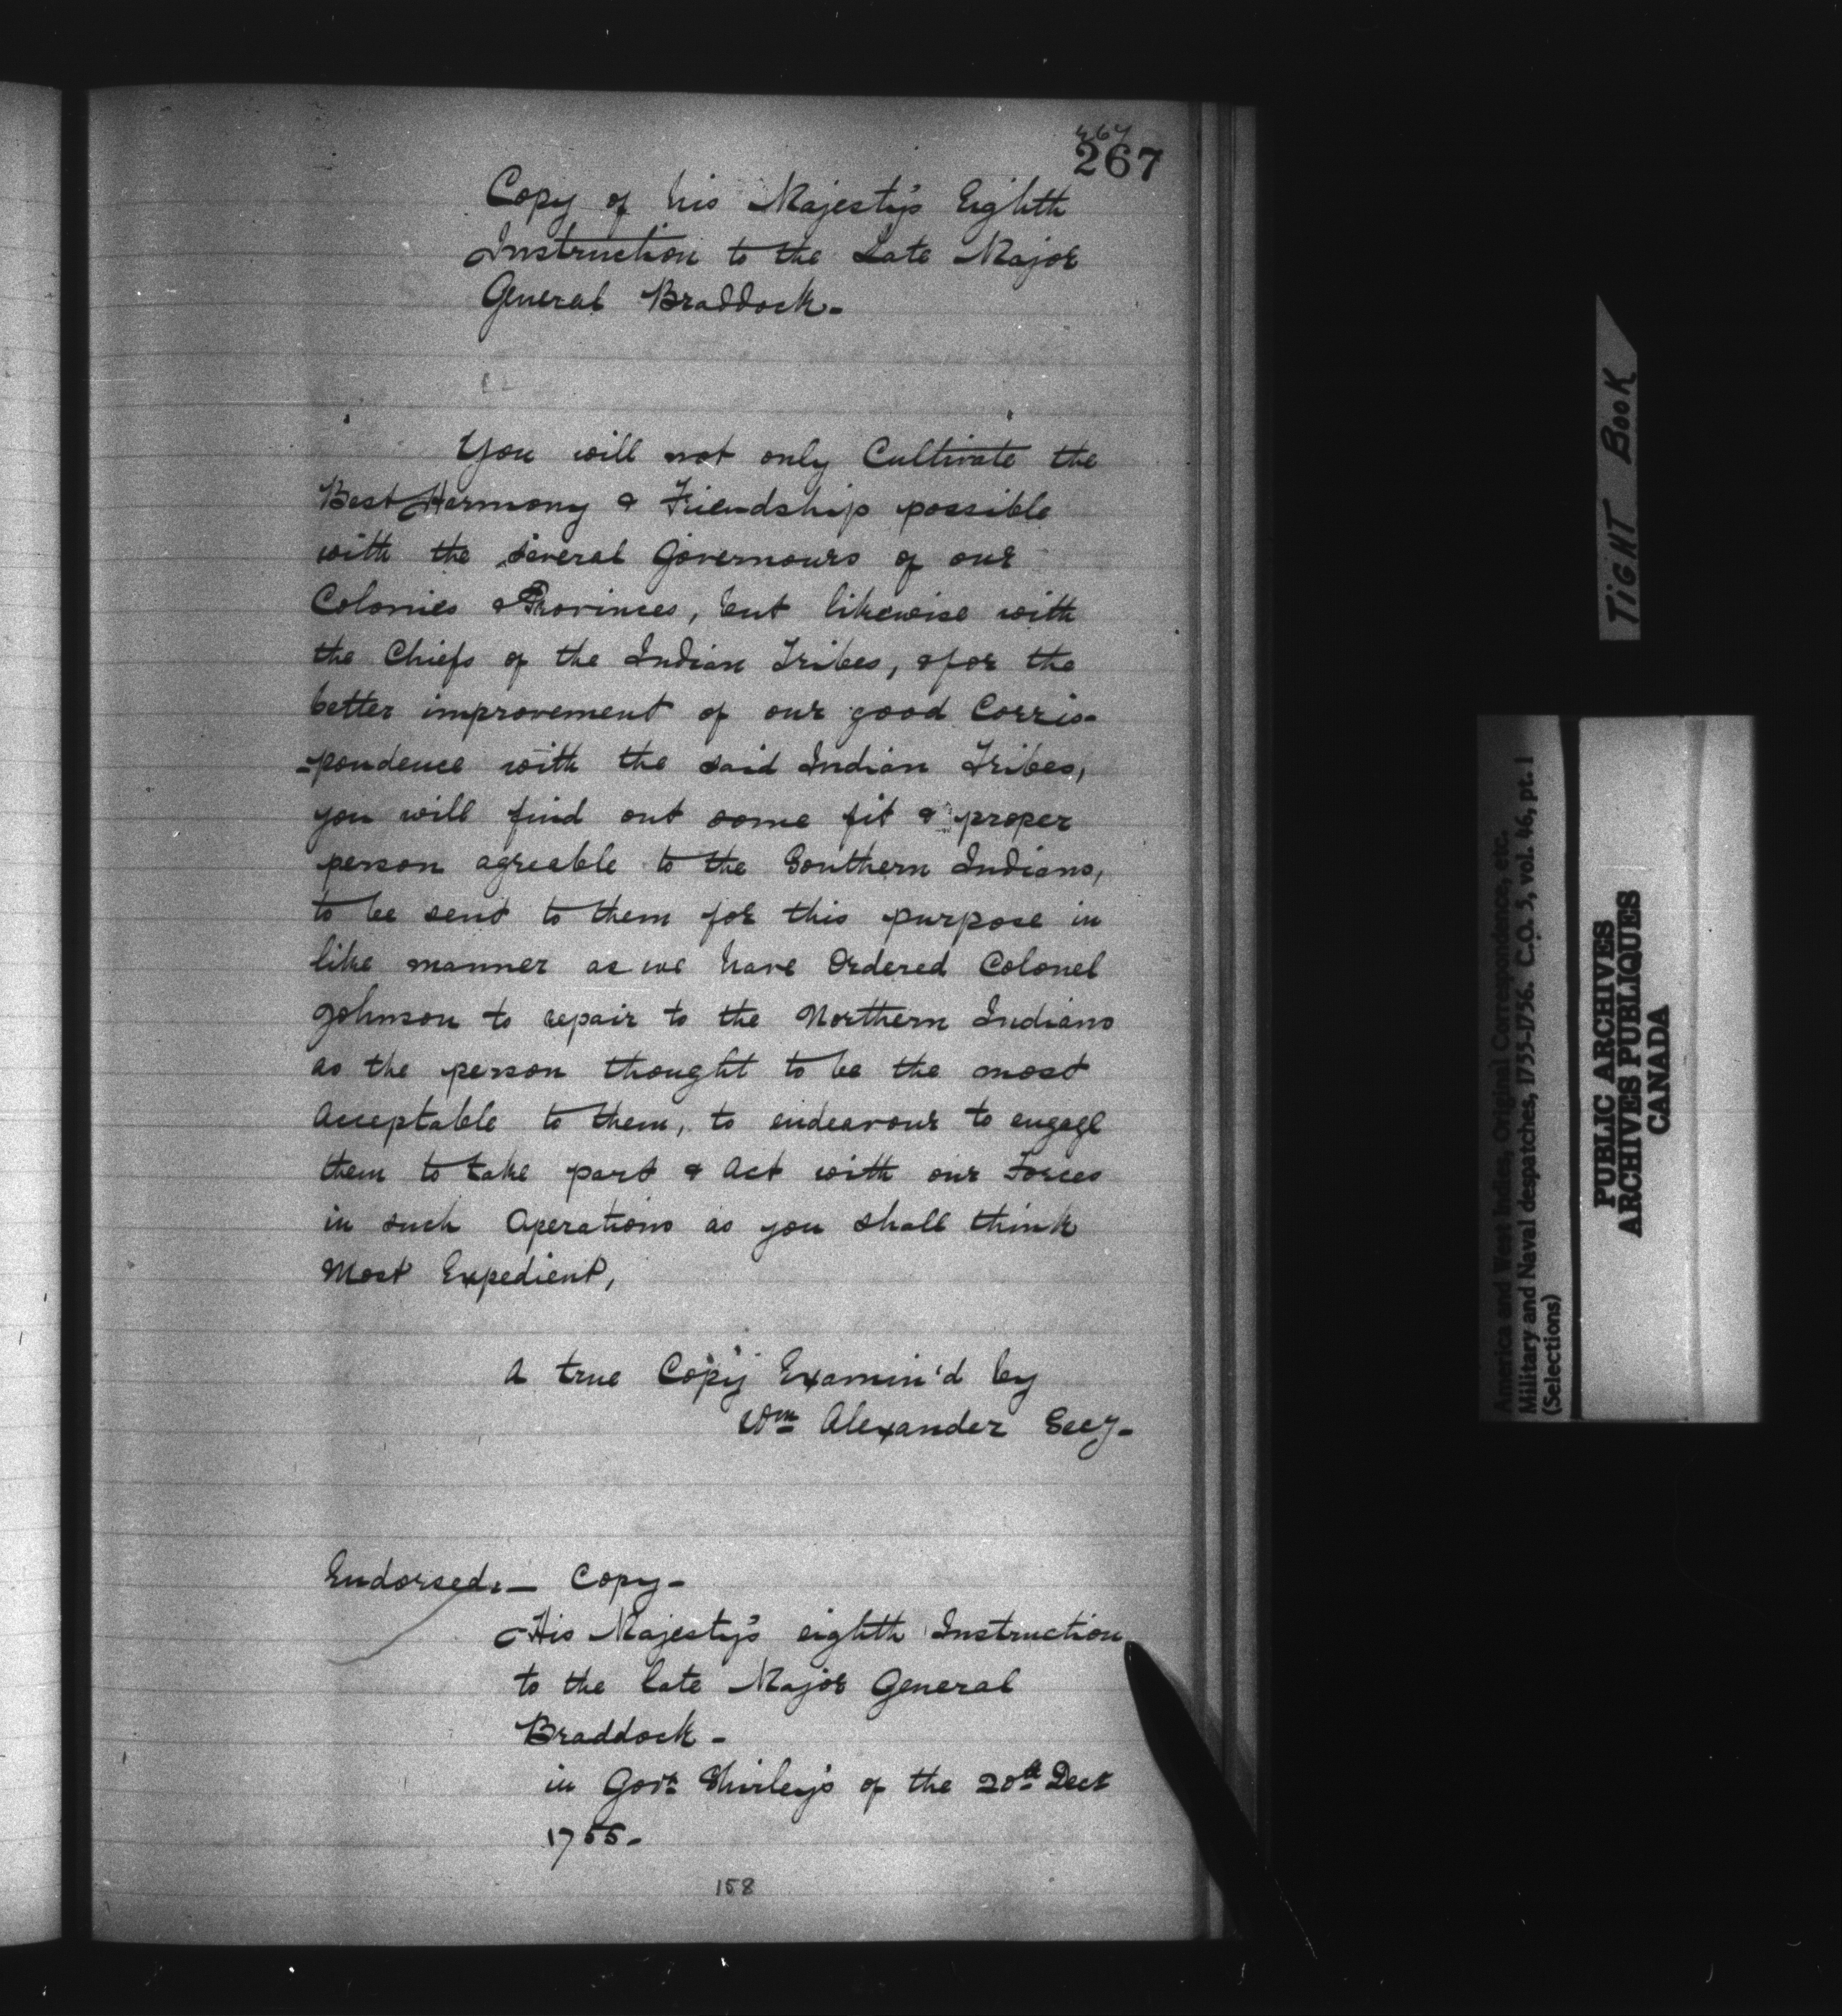 267
267
Copy of his Majesty's Eighth
Instruction to the Late Major
General Braddock-
You will not only Cultivate the
Best Harmony & Friendship possible
with the several Governours of our
Colonies & Provinces, but likewise with
the Chiefs of the Indian Tribes, & for the
better improvement of our good Corris-
-pondence with the said Indian Tribes,
you will find out some fit & proper
person agreable to the Southern Indians,
to be sent to them for this purpose in
like manner as we have Ordered Colonel
Johnson to repair to the Northern Indians
as the person thought to be the most
Acceptable to them, to endeavour to engage
them to take part & Act with our Forces
in such Operations as you shall think
Most Expedient,
A true Copy Examin'd by
Wm Alexander Secy-
Endorsed:- Copy-
His Majesty's eighth Instruction
to the late Major General
Braddock-
in Govr Shirley's of the 20th Decr
1755-
158
TIGHT BOOK
America and West Indies, Original Correspondence, etc.
Military and Naval despatches, 1755-1756. C.O. 5, vol. 46, pt. 1
(Selections)
PUBLIC ARCHIVES
ARCHIVES PUBLIQUES
CANADA